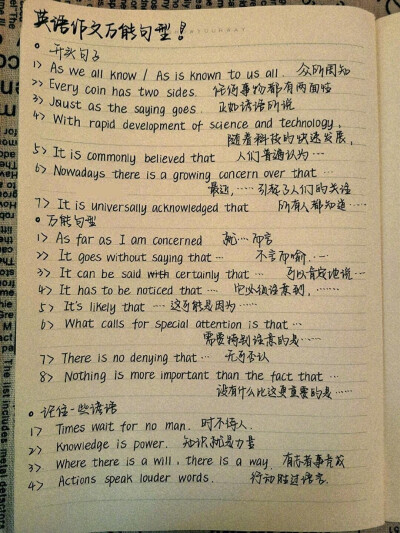 英语作文万能句型!
。开头句子
1> As we all know / As is known to us all. 众所周知
2> Every coin has two sides. 任何事物都有两面性
3> Jaust as the saying goes. 正如谚语所说
4> With rapid development of science and technology,
随着科技的快速发展,
5> It is commonly believed that 人们普遍认为…
6> Nowadays there is a growing concern over that …
最近,…… 引起了人们的关注
7> It is universally acknowledged that 所有人都知道……
。万能句型
1> As far as I am concerned 就…而言
2> It goes without saying that… 不言而喻,…
3> It can be said with certainly that… 可以肯定地说…
4> It has to be noticed that … 它必须注意到,……
5> It's likely that … 这可能是因为……
6> What calls for special attention is that …
需要特别注意的是……
7> There is no denying that… 无可否认
8> Nothing is more important than the fact that …
没有什么比这更重要的是……
。记住一些谚语
1> Times wait for no man. 时不待人.
2> Knowledge is power. 知识就是力量
3> Where there is a will, there is a way. 有志者事竟成
4> Actions speak louder words. 行动胜过语言.
The list includes metal detectors